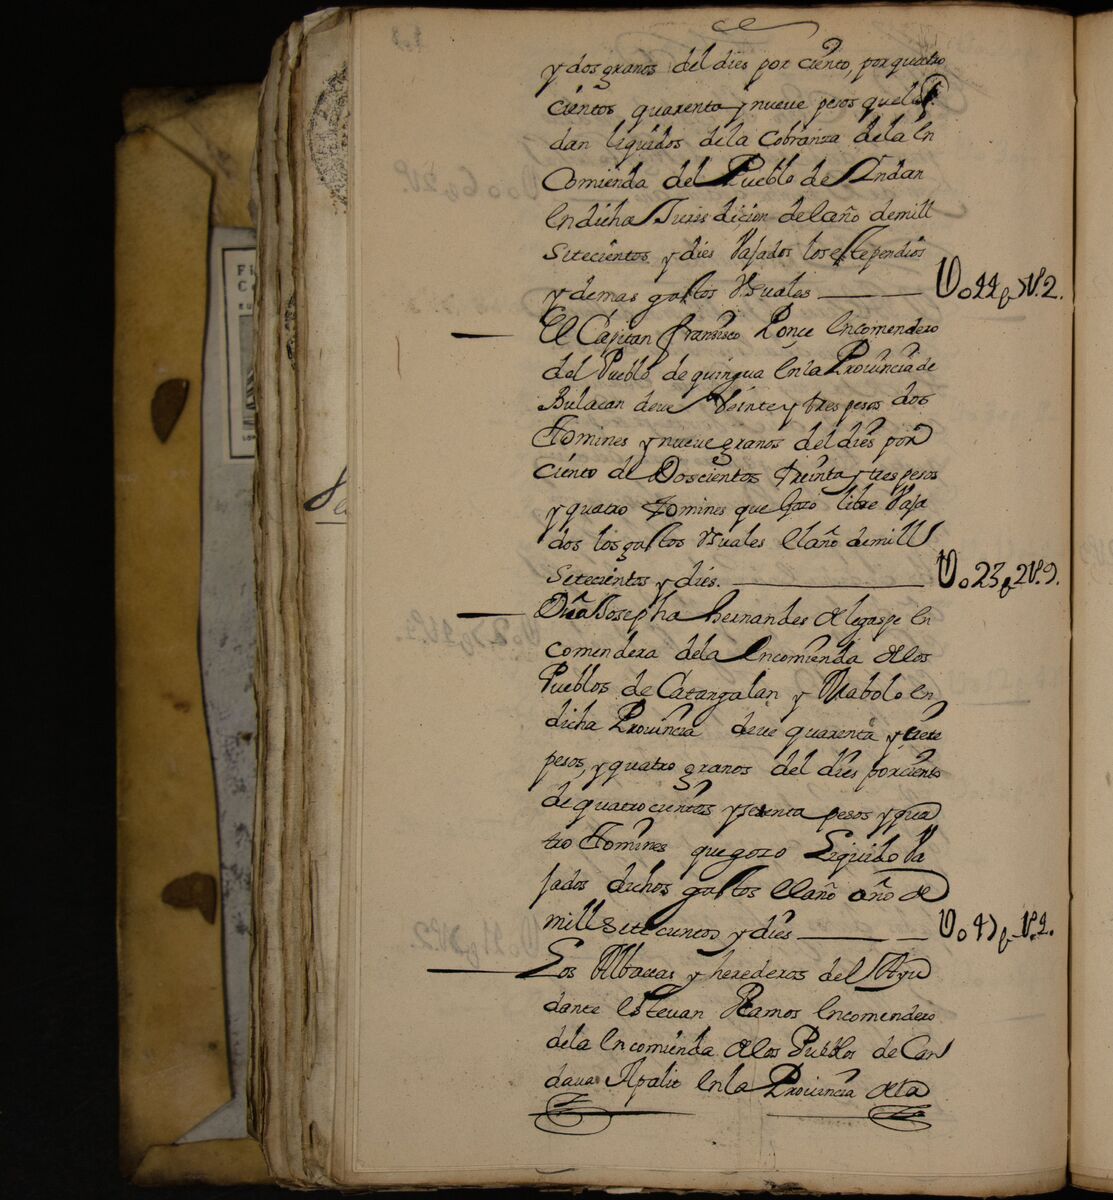 y dos granos del dies por ciento, por quatro
cientos quarenta y nueve pesos quele
dan liquidos dela Cobranza dela En
Comienda del Pueblo de Indan
En dicha Jurisdicion del año demill
Setecientos y dies Vajados los estependios
y demas gastos Vsuales — V o44 p s V.2.
El Capitan francisco Ponce Encomendero
del Pueblo de quingua Enla Provincia de
Bulacan deve Veinte y tres pesos dos
tomines y nueve granos del dies por
ciento de Doscientos treinta y tres pesos
y quatro tomines que gozo libre Vaja
dos los gastos Vsuales El año demill
Setecientos y dies. — V o23 p 2 V.9.
Dña Josepha hernandes de legaspe En
comendera dela Encomienda de los
Pueblos de Catangalan y Mabolo En
dicha Provincia deve quarenta y siete
pesos, y quatro granos del dies por ciento
de quatrocientos y setenta pesos y qua
tro tomines que gozo Liquido Va
jados dichos gastos El año año de
mill Setecientos y dies — V o47 p V.4.
Los Albaceas y herederos del Ayu
dante Estevan Ramos Encomendero
dela Encomienda de los Pueblos de Can
dava Apalit Enla Provincia de la